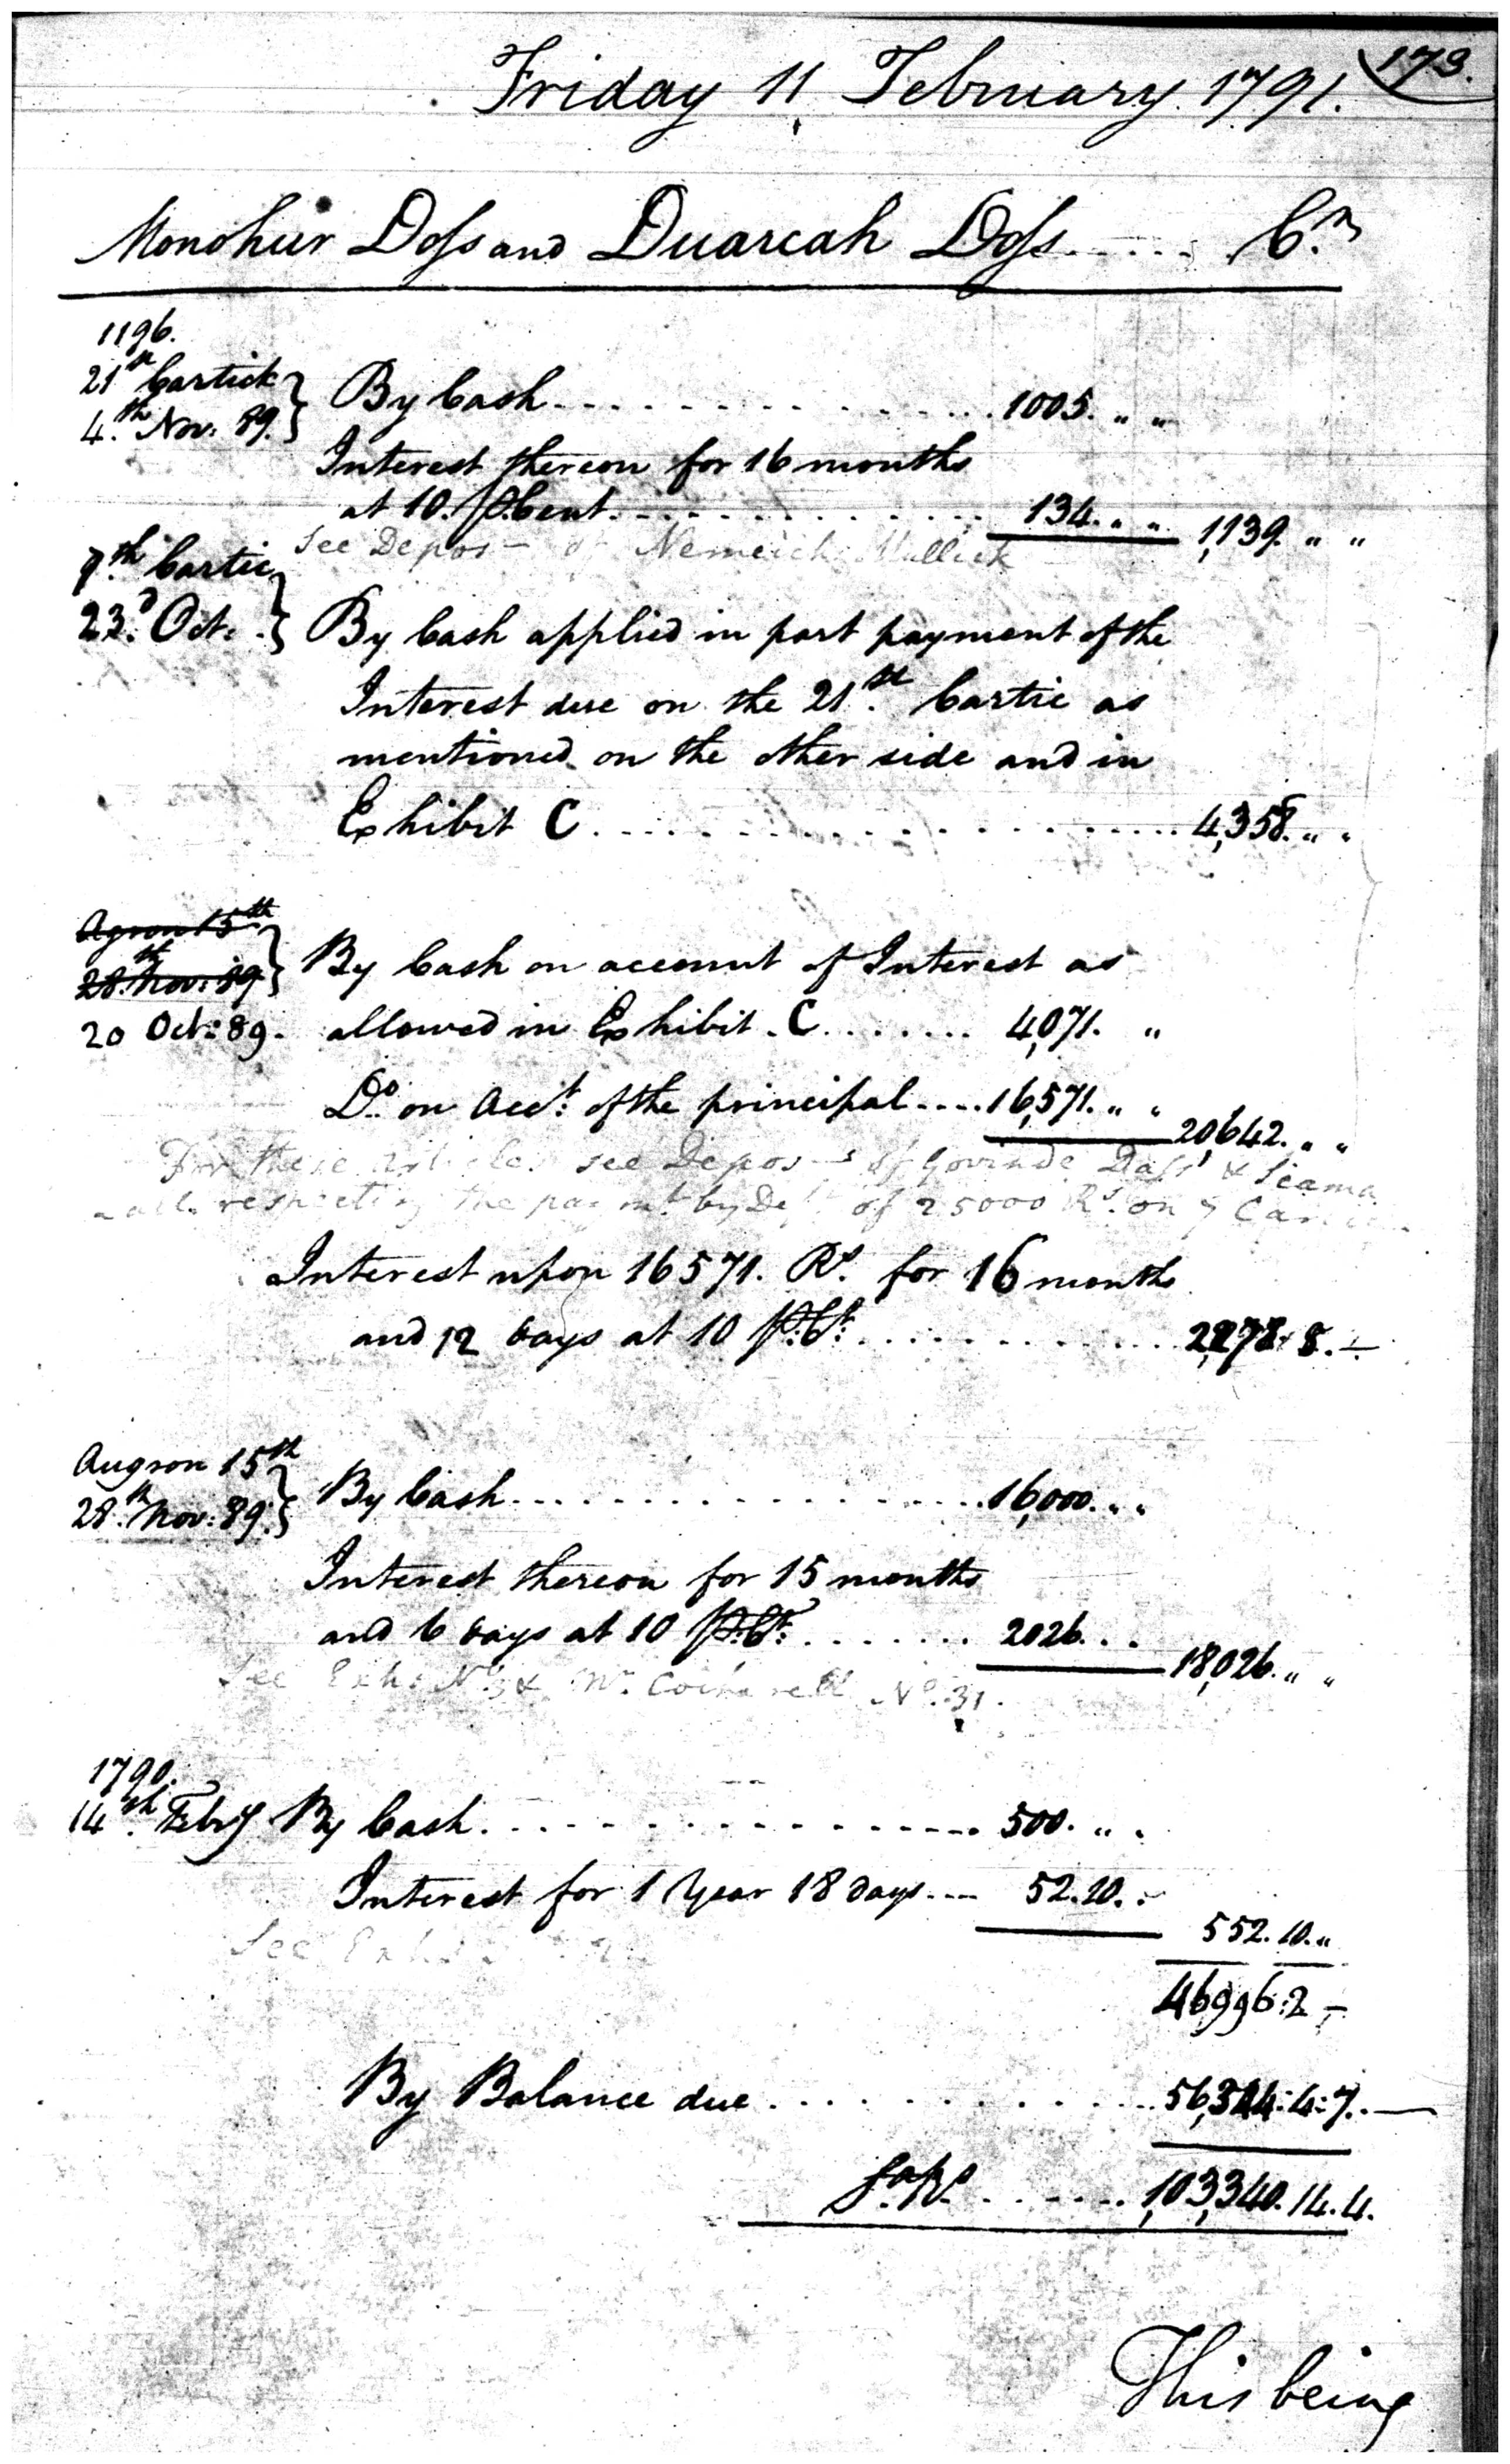 173.
Friday 11 February 1791.
Monohur Doss and Duarcah Doss ..... Cr
1196.
21st Cartick
4th Nov: 89. } By Cash ............... 1005. " "
Interest thereon for 16 months
at 10. P Cent. ............ 134. " " 1,139. " "
See Depos- of Nemeich Mullick
7th Cartic
23d Oct: } By Cash applied in part payment of the
Interest due on the 21st Cartic as
mentioned on the other side and in
Exhibit C .................... 4,358. " "
Agron 15th
28th Nov: 89 } By Cash on account of Interest as
20 Oct: 89. allowed in Exhibit C ........ 4,071. "
Do on Acct: of the principal .... 16,571. " " 20,642. " "
For these articles see Depos-s of Govinde Dass &
respecting the paymt by Deft of 25000 Rs on 7
Interest upon 16571. Rs. for 16 months
and 12 days at 10 P: Ct: ............ 2,278. 8. -
Augron 15th
28th Nov: 89. } By Cash ................. 16,000. " "
Interest thereon for 15 months
and 6 days at 10 P: Ct: ....... 2026. . . 18,026. " "
See Exh: No. & Mr. No. 31.
1790.
14th Feby By Cash ................ 500. " "
Interest for 1 Year 18 days ... 52. 10. "
552. 10. "
See Exh:
46996: 2 -
By Balance due ............. 56,344: 4: 7. -
Sa Rs ....... 1,03,340. 14. 4.
This being